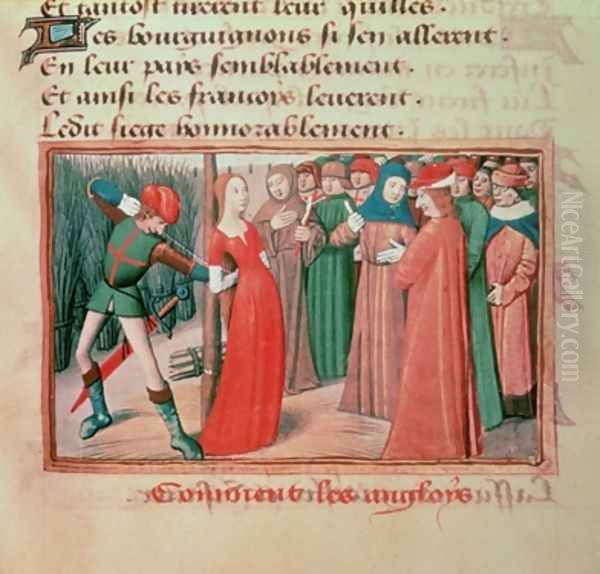 Et tantost tirerent leur quilles.
Les bourguignons si sen allerent.
En leur pays semblablement.
Et ainsi les francoys leuerent.
Ledit siege honnorablement.
Comment les angloys
NiceArtGallery.com